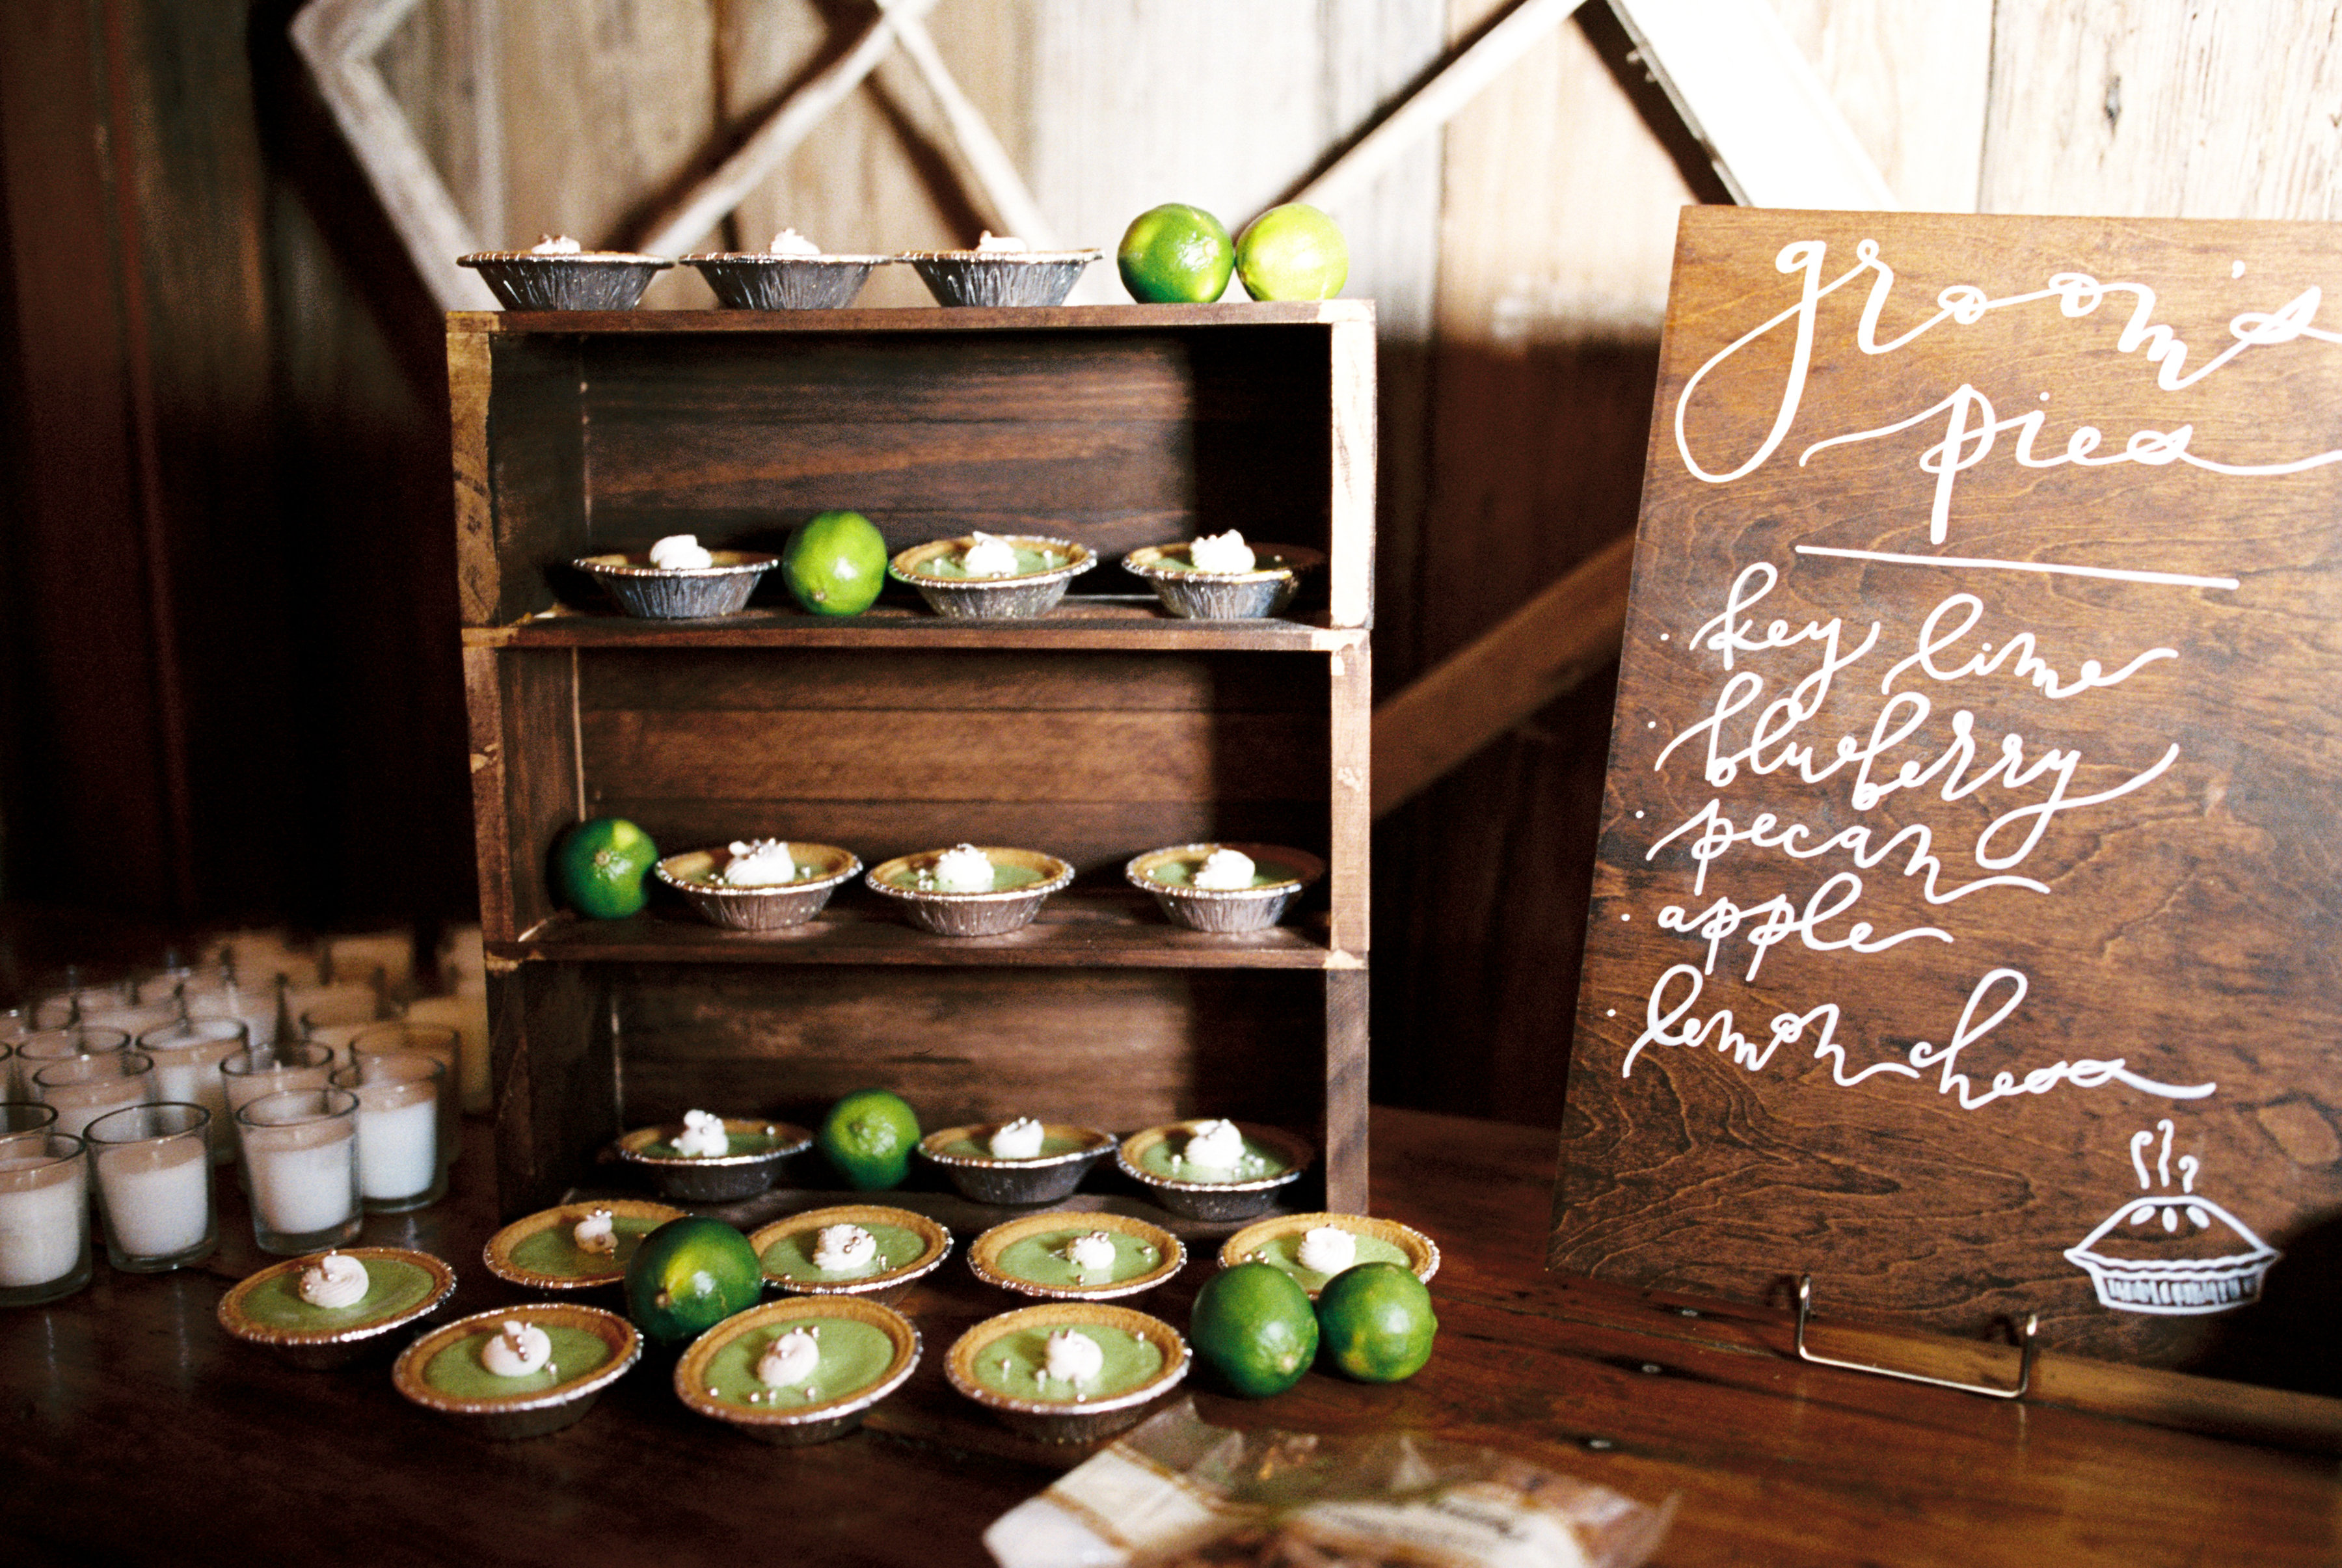 groom's
pies
· key lime
· blueberry
· pecan
· apple
· lemon chess